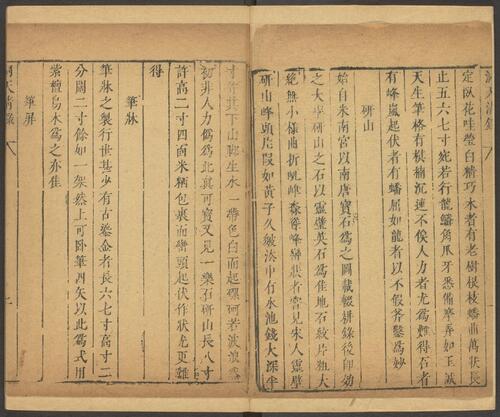 定臥花哇瑩白精巧木者有老樹根枝蟠曲萬狀長
止五六七寸宛若行龍鱗角爪牙悉備摩弄如玉誠
天生筆格有棋楠沉速不俟人力者尤爲難得石者
有峰嵐起伏者有蟠屈如龍者以不假斧鑿爲妙
研山
始自米南宮以南唐寶石爲之圖載輟耕錄後卽効
之大率研山之石以靈璧英石爲佳他石紋片粗大
絶無小樣曲折屼峰森聳峰巒狀者嘗見宋人靈璧
研山峰頭片叚如黃子久皴法中有水池錢大深半
寸許其下山脚生水一帶色白而起磥砢若波浪然
初非人力僞爲此眞可寶又見一樂石研山長八寸
許高二寸四面米粞包裹而巒頭起伏作狀尤更難
得
筆牀
筆牀之製行世甚少有古鎏金者長六七寸高寸二
分闊二寸餘如一架然上可臥筆四矢以此爲式用
紫檀烏木爲之亦佳
筆屛